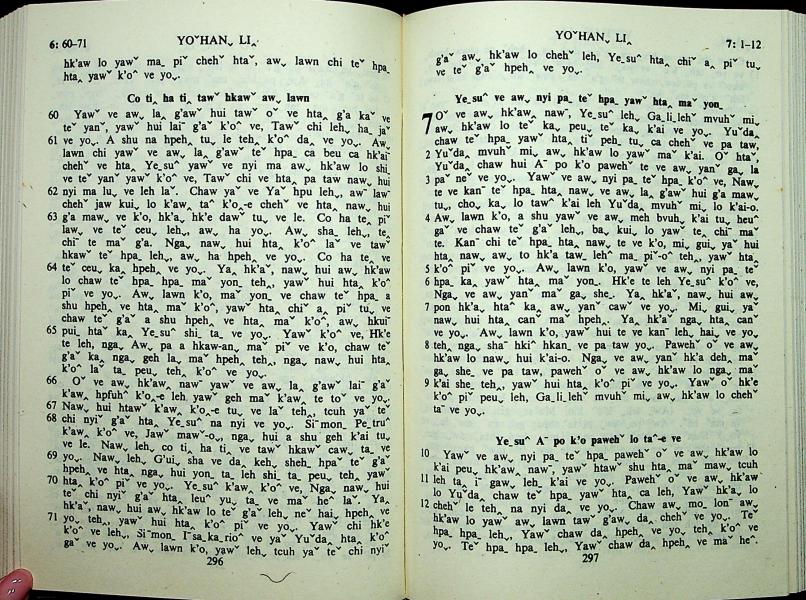 6: 60–71
YOˇHANˬ LI˰
hkˬ'aw lo yawˇ maˍ piˇ chehˇ htaˇ, awˬ lawn chi teˇ hpaˍ
htaˬ yawˇ k'oˆ ve yoˬ.
Co tiˬ ha tiˬ tawˇ hkawˇ awˬ lawn
60 Yawˇ ve awˬ laˬ g'awˇ hui tawˇ oˇ ve htaˬ g'a kaˇ ve
teˇ yanˉ, yawˇ hui lai g'aˇ k'oˆ ve, Tawˇ chi leh ha ja
61 ve yoˬ. A shu na hpeh tuˬ le tehˬ k'oˆ daˬ ve yoˬ. Awˬ
lawn chi yawˇ ve awˬ laˬ g'awˇ teˇ hpaˍ ca beu ca hk'ai
chehˇ ve htaˬ Yeˍsuˆ yawˇ ve nyi ma awˬ hk'aw lo shi
ve teˇ yanˉ yawˇ k'oˆ ve, Tawˇ chi ve htaˬ pa taw nawˬ hui
62 nyi ma luˬ ve leh laˇ. Chaw yaˇ ve Yaˇ hpu lehˬ, awˉ lawˉ
63 g'a mawˬ ve k'o, hk'aˬ hk'e dawˇ tuˬ ve le. Co ha teˬ piˇ
lawˬ ve teˇ ceuˬ lehˬ, aw ha yoˬ. Awˬ sha lehˬ, teˬ
chiˉ te maˇ g'a. Ngaˬ nawˬ hui htaˬ k'oˆ laˇ ve tawˇ
hkawˇ teˇ hpaˍ lehˬ, aw ha hpehˬ ve yoˬ. Co ha teˬ ve
64 teˇ ceuˬ kaˬ hpehˬ ve yoˬ. Yaˬ hk'aˇ, nawˬ hui awˬ hk'aw
lo chaw teˇ hpaˍ hpaˍ maˇ yonˍ tehˬ, yawˇ hui htaˬ k'oˆ
piˇ ve yoˬ. Awˬ lawn k'o, maˇ yonˍ ve chaw teˇ hpaˍ a
shu hpehˬ ve htaˬ maˇ k'oˆ, yawˇ htaˬ chiˇ aˬ piˇ tuˬ ve
chaw teˇ g'aˇ a shu hpehˬ ve htaˬ maˇ k'oˆ, awˬ hkuiˉ
65 puiˬ htaˇ kaˬ Yeˍsuˆ shiˬ taˍ ve yoˬ. Yawˇ k'oˆ ve, Hk'e
te leh, ngaˬ Awˬ pa a hkaw-anˬ maˇ piˇ ve k'o, chaw teˇ
g'aˇ kaˬ ngaˬ geh laˬ maˇ hpehˬ tehˬ, ngaˬ nawˬ hui htaˬ
k'oˆ laˇ taˍ peuˬ tehˬ k'oˆ ve yoˬ.
66 Oˇ ve awˬ hk'awˬ nawˉ yawˇ ve awˬ laˬ g'awˇ laiˉ g'aˇ
67 Nawˬ hui htawˇ k'awˬ k'oˬ-e tuˬ ve laˇ tehˬ, tcuh yaˇ teˇ
68 chi nyiˇ g'aˇ htaˬ Yeˍsuˆ na nyi ve yoˬ. Siˉmonˍ Peˍtruˆ
k'awˬ k'oˆ ve, Jawˇ mawˇ-oˬ, ngaˬ hui a shu geh k'ai tuˬ
ve le. Nawˬ leh, co tiˬ ha tiˬ ve tawˇ hkawˇ cawˬ taˍ ve
69 yoˬ. Nawˬ lehˬ G'uiˬ sha ve daˬ keh shehˬ hpaˍ teˇ g'aˇ
hpehˬ ve htaˬ ngaˬ hui yonˍ taˍ leh shi taˍ peuˬ tehˬ yawˇ
70 htaˬ k'oˆ piˇ ve yoˬ. Yeˍsuˆ k'awˬ k'oˆ ve, Ngaˬ nawˬ hui
teˇ chi nyiˇ g'aˇ htaˬ leuˇ yuˬ taˍ ve maˇ heˆ laˇ. Yaˬ
hk'aˇ, nawˬ hui awˬ hk'aw lo teˇ g'aˇ lehˬ neˇ haiˬ hpehˬ ve
71 yoˬ tehˬ, yawˇ hui htaˬ k'oˆ piˇ ve yoˬ. Yawˇ chi hk'e
k'oˆ ve lehˬ, Siˉmonˍ Iˉsaˍkaˍrioˆ ve yaˇ Yuˇdaˬ htaˬ k'oˆ
gaˇ ve yoˬ. Awˬ lawn k'o, yawˇ lehˬ tcuh yaˇ teˇ chi nyiˇ
296
YOˇHANˬ LI˰
7: 1–12
g'aˇ awˬ hk'aw lo chehˇ leh, Yeˍsuˆ htaˬ chiˇ aˬ piˇ tuˬ
ve teˇ g'aˇ hpehˬ ve yoˬ.
Yeˍsuˆ ve awˬ nyi paˍ teˇ hpaˍ yawˇ htaˬ maˇ yonˍ
7 Oˇ ve awˬ hk'awˬ nawˉ, Yeˍsuˆ leh Gaˍliˍleh mvuhˇ miˬ
awˬ hk'aw lo teˇ kaˬ peuˬ teˇ kaˬ k'ai ve yoˬ. Yuˇdaˬ
chaw teˇ hpaˍ yawˇ htaˬ tiˇ pehˬ tuˬ ca chehˇ ve pa taw,
2 Yuˇdaˬ mvuhˇ miˬ awˬ hk'aw lo yawˇ maˇ k'ai. Oˇ htaˇ
Yuˇdaˬ chaw hui Aˉ po k'o pawehˇ teˇ ve awˬ yanˇ gaˬ la
3 paˇ neˇ ve yoˬ. Yawˇ ve awˬ nyi paˍ teˇ hpaˍ k'oˆ ve, Nawˬ
te ve kanˇ teˇ hpaˍ htaˬ nawˬ ve awˬ laˬ g'awˇ hui g'a mawˬ
tuˬ, choˬ kaˬ lo tawˇ k'ai leh Yuˇdaˬ mvuhˇ miˬ lo k'ai-o.
4 Awˬ lawn k'o, a shu yawˇ ve awˬ meh bvuhˬ k'ai tuˬ heuˆ
gaˇ ve chaw teˇ g'aˇ lehˬ, baˬ kuiˬ lo yawˇ teˬ chiˉ maˇ
te. Kanˇ chi teˇ hpaˍ htaˬ nawˬ te ve k'o, miˬ guiˬ yaˇ hui
htaˬ nawˬ awˬ to hk'a tawˬ lehˆ maˍ piˇ-oˆ tehˬ, yawˇ htaˬ
5 k'oˆ piˇ ve yoˬ. Awˬ lawn k'o, yawˇ ve awˬ nyi paˍ teˇ
6 hpaˍ kaˬ yawˇ htaˬ maˇ yonˍ. Hk'e te leh Yeˍsuˆ k'oˆ ve,
Ngaˬ ve awˬ yanˇ maˇ gaˬ sheˍ. Yaˬ hk'aˇ, nawˬ hui awˬ
7 ponˬ hk'aˬ htaˆ kaˬ awˬ yanˇ cawˇ ve yoˬ. Miˬ guiˬ yaˇ
nawˬ hui htaˬ canˇ maˇ hpehˬ. Yaˬ hk'aˇ ngaˬ htaˬ canˇ
ve yoˬ. Awˬ lawn k'o, yawˇ hui te ve kanˇ lehˬ haiˬ ve yoˬ
8 tehˬ ngaˬ shaˉ hkiˆ hkanˬ ve pa taw yoˬ. Pawehˇ oˇ ve awˬ
hk'aw lo nawˬ hui k'ai-o. Ngaˬ ve awˬ yanˇ hk'a dehˬ maˇ
gaˬ sheˍ ve pa taw, pawehˇ oˇ ve awˬ hk'aw lo ngaˬ maˇ
9 k'ai sheˍ tehˬ, yawˇ hui htaˬ k'oˆ piˇ ve yoˬ. Yawˇ oˇ hk'e
k'oˆ piˇ peuˬ leh, Gaˍliˍleh mvuhˇ miˬ awˬ hk'aw lo chehˇ
taˉ ve yoˬ.
Yeˍsuˆ Aˉ po k'o pawehˇ lo taˆ-e ve
10 Yawˇ ve awˬ nyi paˍ teˇ hpaˍ pawehˇ oˇ ve awˬ hk'aw lo
k'ai peuˬ hk'awˬ nawˉ, yawˇ htawˇ shu htaˬ maˇ mawˬ tcuh
11 leh taˬ iˉ gawˬ lehˬ k'ai ve yoˬ. Pawehˇ oˇ ve awˬ hk'aw
lo Yuˇdaˬ chaw teˇ hpaˍ yawˇ htaˬ ca leh, Yawˇ hk'aˬ lo
12 chehˇ le tehˬ na nyi daˬ ve yoˬ. Chaw awˬ moˬ lonˉ awˬ
hk'aw lo yawˇ awˬ lawn tawˇ g'awˬ daˬ chehˇ ve yoˬ. Teˇ
hpaˍ hpaˍ lehˬ, Yawˇ chaw daˬ hpehˬ ve yoˬ tehˬ k'oˆ ve
yoˬ. Teˇ hpaˍ hpaˍ lehˬ, Yawˇ chaw daˬ hpehˬ ve maˇ heˆ.
297